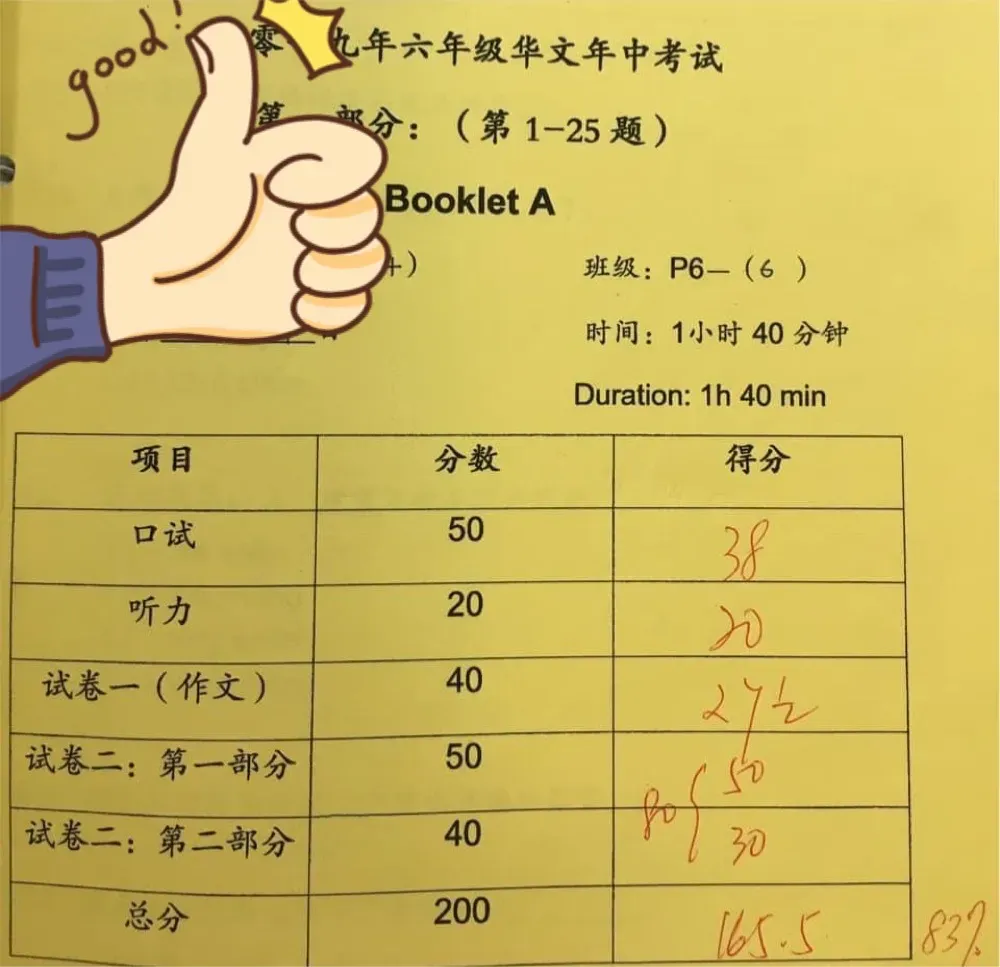 good!
零 九年六年级华文年中考试
第 部分：（第 1-25 题）
Booklet A
4）
班级：P6—（6 ）
时间：1小时 40 分钟
Duration: 1h 40 min
项目 分数 得分
口试 50 38
听力 20 20
试卷一（作文） 40 27½
试卷二：第一部分 50 50
80
试卷二：第二部分 40 30
总分 200 165.5 83%